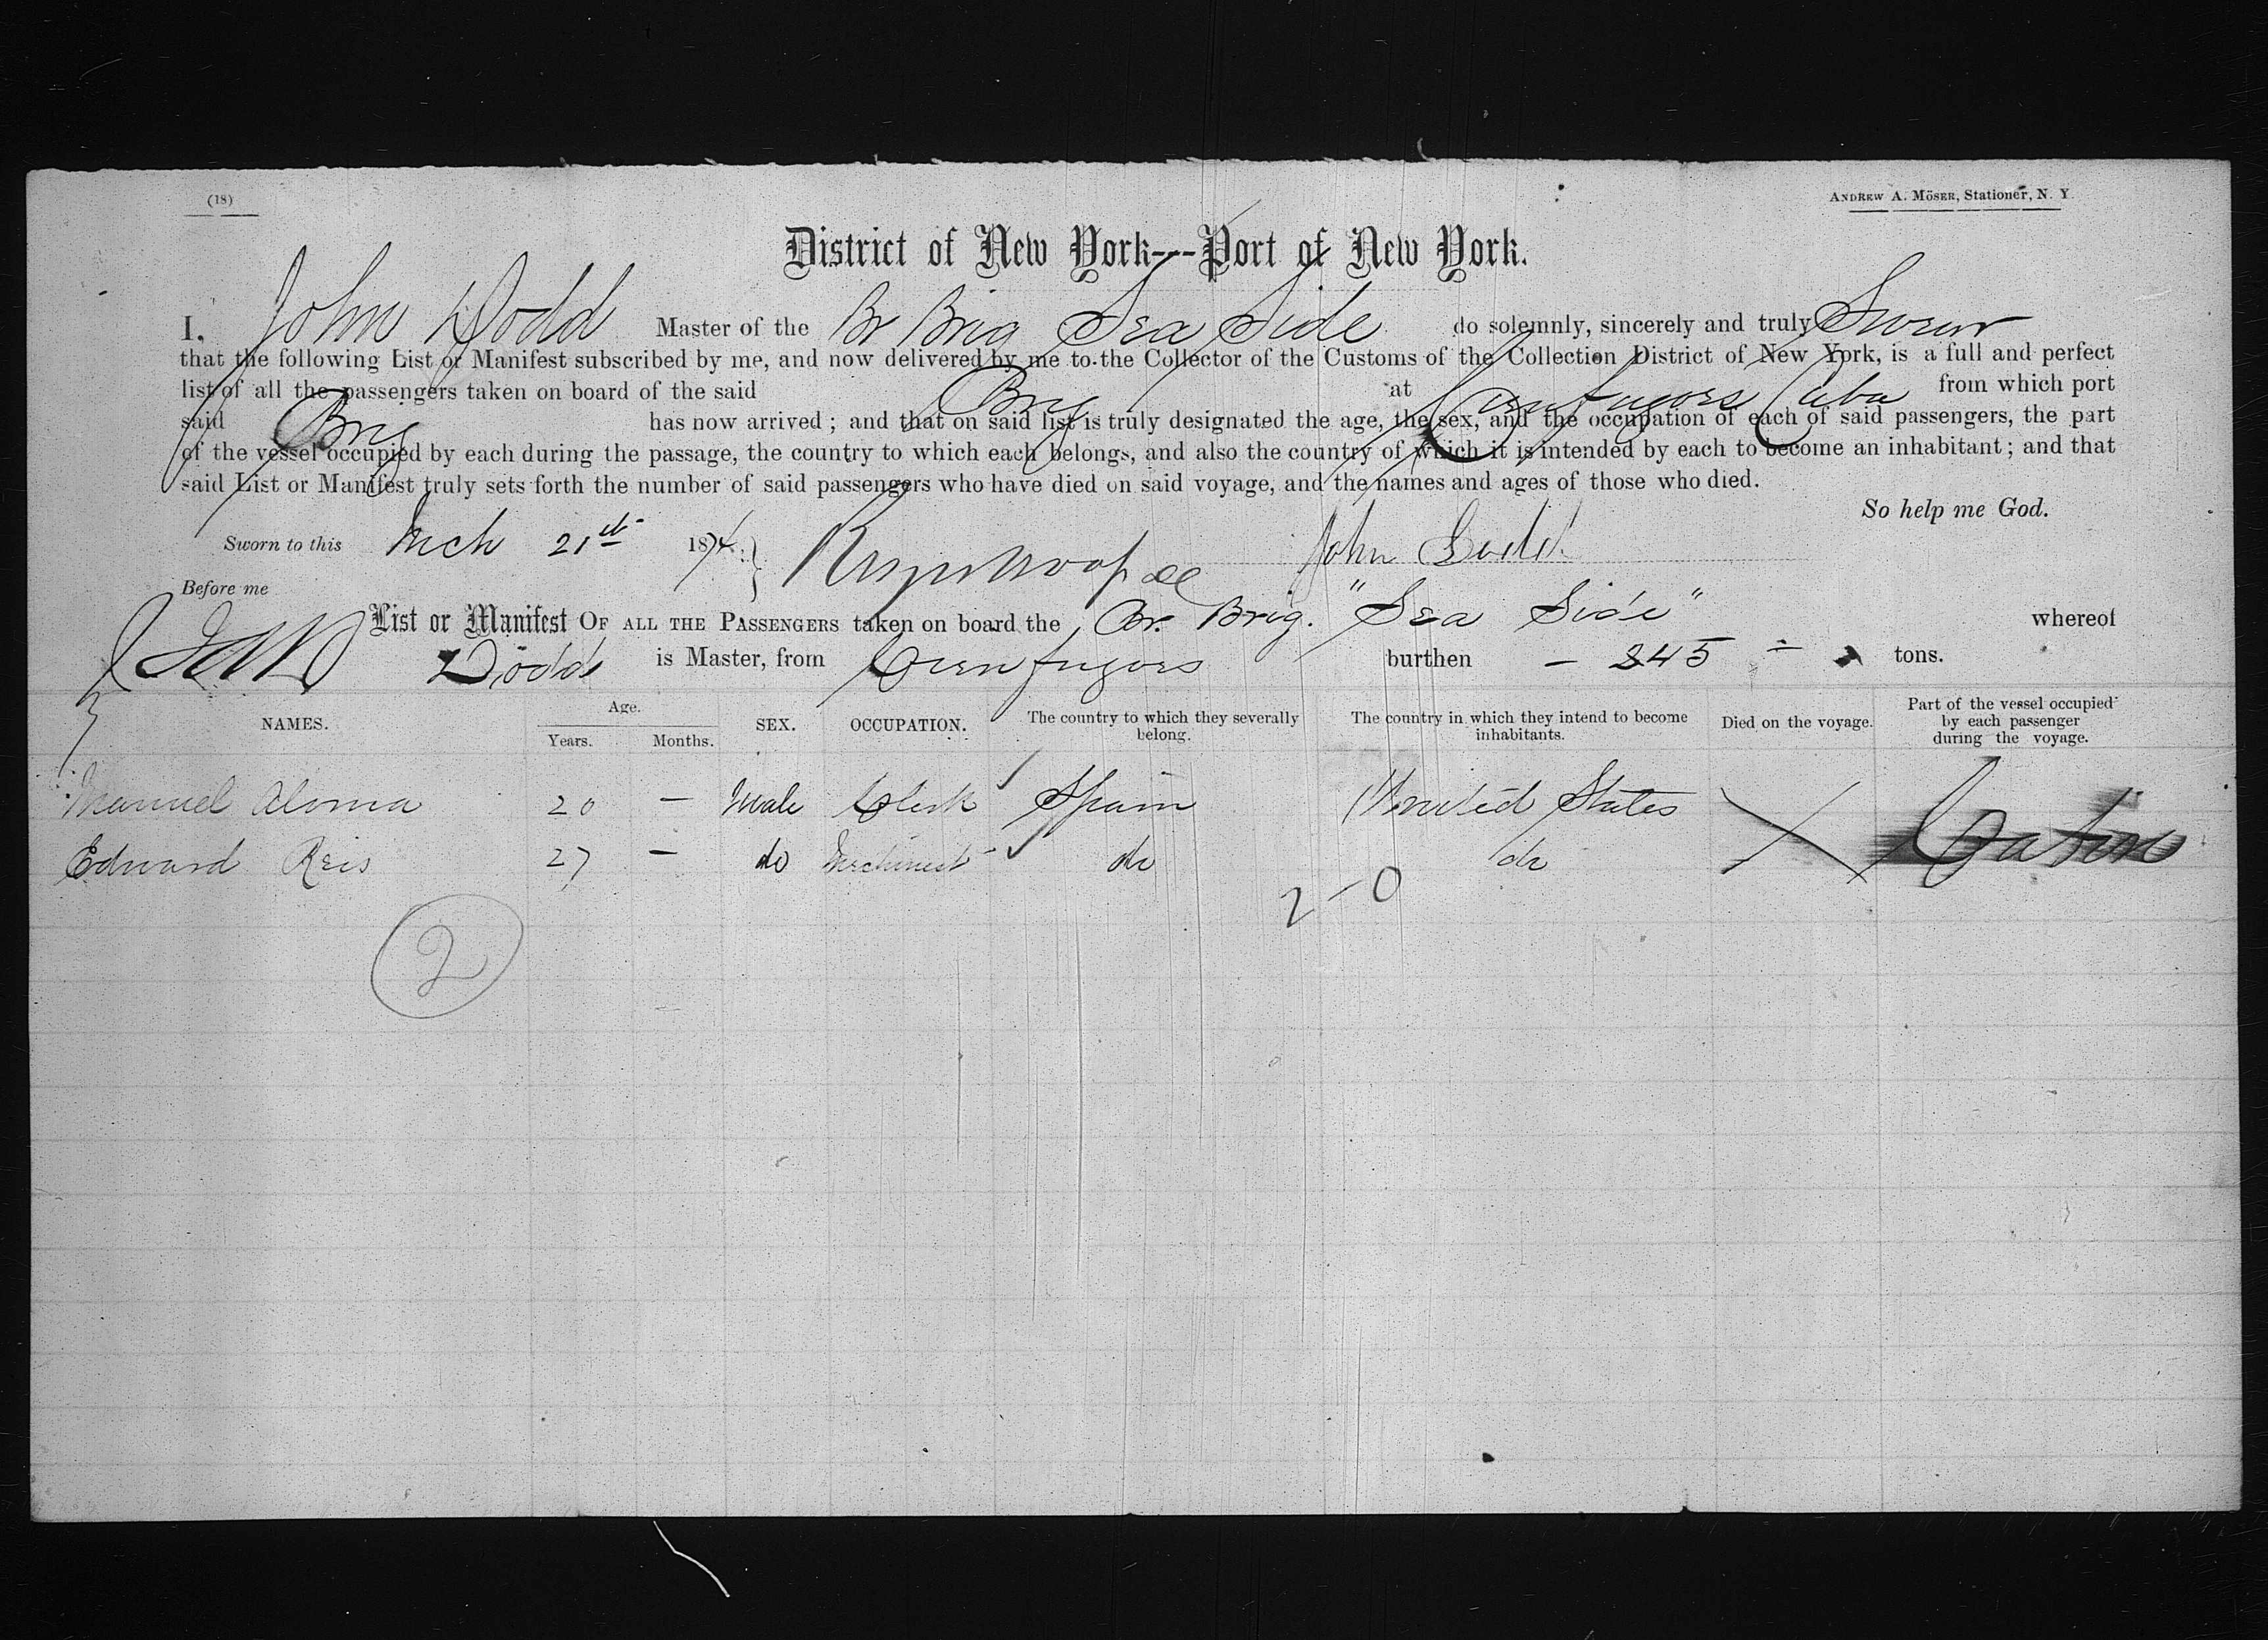 (18)
ANDREW A. MÖSER, Stationer, N. Y.
District of New York---Port of New York.
I, John Dodd Master of the Br Brig Sea Side do solemnly, sincerely and truly Swear
that the following List or Manifest subscribed by me, and now delivered by me to the Collector of the Customs of the Collection District of New York, is a full and perfect
list of all the passengers taken on board of the said Brig at Cienfugors Cuba from which port
said Brig has now arrived; and that on said list is truly designated the age, the sex, and the occupation of each of said passengers, the part
of the vessel occupied by each during the passage, the country to which each belongs, and also the country of which it is intended by each to become an inhabitant; and that
said List or Manifest truly sets forth the number of said passengers who have died on said voyage, and the names and ages of those who died.
So help me God.
Sworn to this Mch 21st 1874. John Dodd
Before me
List or Manifest OF ALL THE PASSENGERS taken on board the Br. Brig. "Sea Side" whereof
Dodd is Master, from Cienfugors burthen – 245 – tons.
NAMES. Age. Years. Months. SEX. OCCUPATION. The country to which they severally belong. The country in which they intend to become inhabitants. Died on the voyage. Part of the vessel occupied by each passenger during the voyage.
Manuel Aloma 20 – Male Clerk Spain United States Cabin
Edward Reis 27 – do Mechinest do do
2–0
2